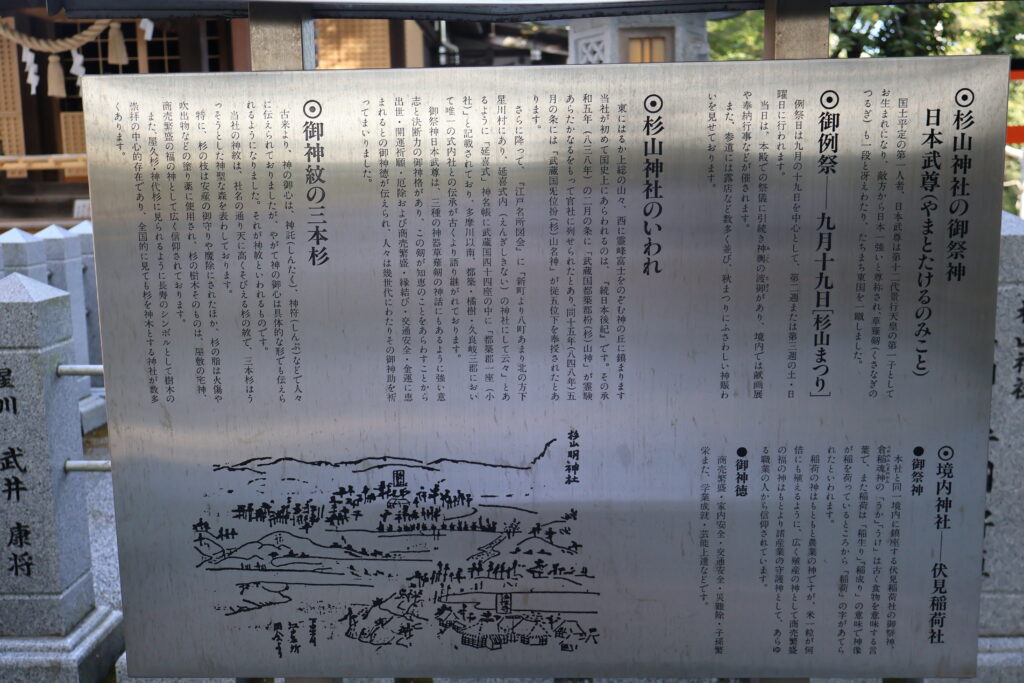 ◉杉山神社の御祭神
日本武尊(やまとたけるのみこと)
国土平定の第一人者、日本武尊は第十二代景行天皇の第一子として
お生まれになり、敵方から日本一強いと尊称され、草薙剣(くさなぎの
つるぎ)も一段と冴えわたり、たちまち東国を一蹴しました。
◉御例祭――九月十九日[杉山まつり]
例祭日は九月の十九日を中心として、第二週または第三週の土・日
曜日に行われます。
当日は、本殿での祭儀に引続き神輿の渡御があり、境内では献画展
や奉納行事などが催されます。
また、参道には露店など数多く並び、秋まつりにふさわしい神賑わ
いを見せております。
◉杉山神社のいわれ
東にはるか上総の山々、西に霊峰富士をのぞむ神の丘に鎮まります
当社が初めて国史上にあらわれるのは、「続日本後紀」です。その承
和五年(八三八年)の二月の条に「武蔵国都築郡枌(杉)山神」が霊験
あらたかなるをもって官社に列せられたとあり、同十五年(八四八年)五
月の条には「武蔵国旡位枌(杉)山名神」が従五位下を奉授されたとあ
ります。
さらに降って、『江戸名所図会』に「新町より八町あまり北の方下
星川村にあり、延喜式内(えんぎしきない)の神社にして云々」とあ
るように『延喜式』神名帳に武蔵国四十四座の中に「都築郡一座(小
社)」と記載されており、多摩川以南、都築・橘樹・久良岐三郡におい
て唯一の式内社との伝承が古くより語り継がれております。
御祭神日本武尊は、三種の神器草薙剣の神話にもあるように強い意
志と決断力の御神格があり、この剣が知恵のことをあらわすことから
出世・開運祈願・厄除および商売繁盛・縁結び・交通安全・金運に恵
まれるとの御神徳が伝えられ、人々は幾世代にわたりその御神助を祈
ってまいりました。
◉御神紋の三本杉
古来より、神の御心は、神託(しんたく)、神符(しんぷ)などで人々
に伝えられておりましたが、やがて神の御心は具体的な形でも伝えら
れるようになりました。それが神紋といわれるものです。
当社の神紋は、社名の通り天に高くそびえる杉の紋で、三本杉はう
っそうとした神聖な森を表わしております。
特に、杉の枝は安産の御守りや魔除にされたほか、杉の脂は火傷や
吹出物などの塗り薬に使用され、杉の樹木そのものは、屋敷の宅神、
商売繁盛の福の神として広く信仰されております。
また、屋久杉や神代杉に見られるように長寿のシンボルとして樹木の
崇拝の中心的存在であり、全国的に見ても杉を神木とする神社が数多
くあります。
◉境内神社――伏見稲荷社
●御祭神
本社と同一境内に鎮座する伏見稲荷社の御祭神、
倉稲魂神の「うか」「うけ」は古く食物を意味する言
葉で、また稲荷は「稲生り」「稲成り」の意味で神像
が稲を荷っているところから「稲荷」の字があてら
れたといわれます。
稲荷の神はもともと農業の神ですが、米一粒が何
倍にも殖えるように、広く殖産の神として商売繁盛
の福の神はもとより諸産業の守護神として、あらゆ
る職業の人から信仰されています。
●御神徳
商売繁盛・家内安全・交通安全・災難除・子孫繁
栄また、学業成就・芸能上達などです。
杉山明神社
星川 武井 康将